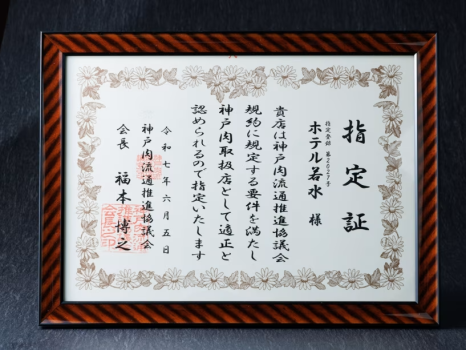 指定証
指定登録 第2027号
ホテル若水 様
貴店は神戸肉流通推進協議会
規約に規定する要件を満たし
神戸肉取扱店として適正と
認められるので指定いたします
令和七年六月五日
神戸肉流通推進協議会
会長 福本博之